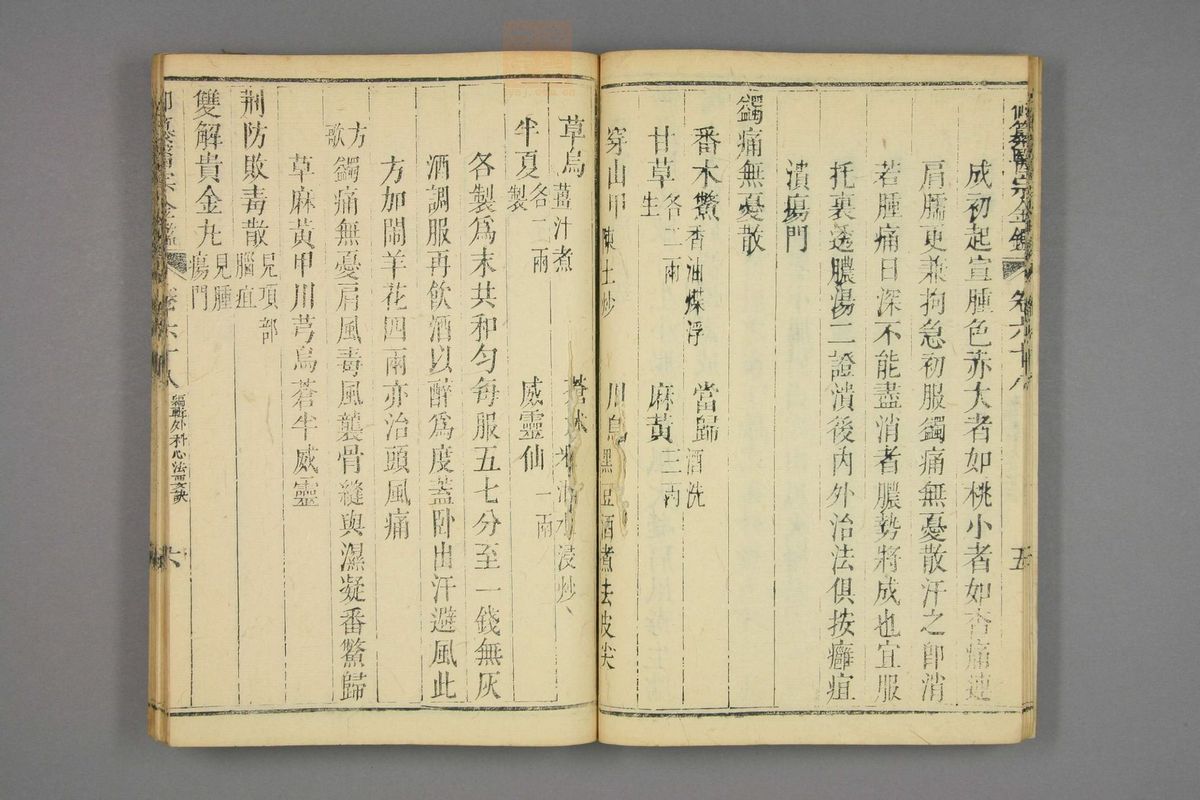 成初起宣腫色赤大者如桃小者如杏痛連
肩臑更兼拘急初服鐲痛無憂散汗之即消
若腫痛日深不能盡消者膿勢將成也宜服
托裏透膿湯二證潰後內外治法俱按癰疽
潰瘍門
鐲痛無憂散
番木鱉香油煠浮 當歸酒洗
甘草生 各二兩 麻黃三兩
穿山甲陳土炒 川烏黑豆酒煮去皮尖
草烏薑汁煮 蒼朮米泔水浸炒
半夏製 各二兩 威靈仙一兩
各製為末共和勻每服五七分至一錢無灰
酒調服再飲酒以醉為度蓋卧出汗避風此
方加鬧羊花四兩亦治頭風痛
方歌 鐲痛無憂肩風毒風襲骨縫與濕凝番鱉歸
草麻黃甲川芎烏蒼半威靈
荊防敗毒散見項部腦疽
雙解貴金丸見腫瘍門
卷六十八 編輯外科心法要訣
五
六